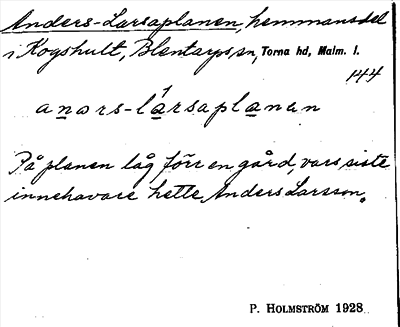 Anders-Larsaplanen, hemmansdel
i Kogshult, Blentarps sn, Torna hd, Malm. l.
144
anors-lársaplanen
På planen låg förr en gård, vars siste
innehavare hette Anders Larsson.
P. HOLMSTRÖM 1928